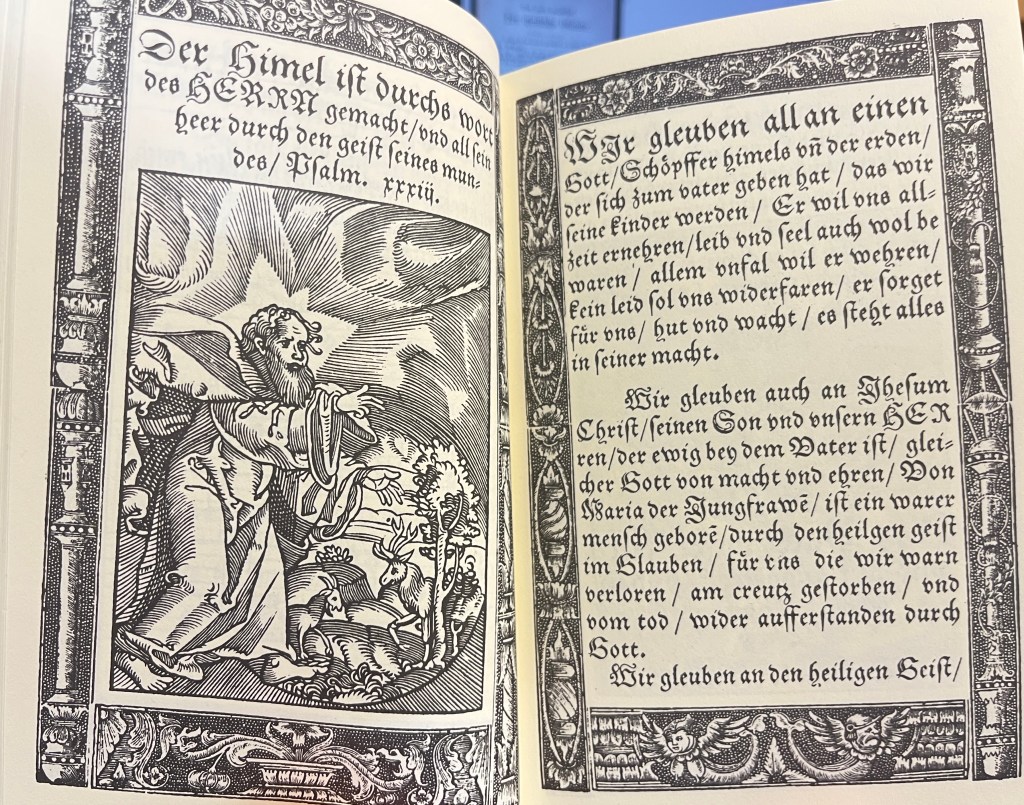 Der Himel ist durchs wort
des HERRN gemacht/vnd all sein
heer durch den geist seines mun-
des/ Psalm. xxxiij.
WIr gleuben all an einen
Gott/Schöpffer himels vñ der erden/
der sich zum vater geben hat / das wir
seine kinder werden/ Er wil vns all-
zeit ernehren/leib vnd seel auch wol be
waren / allem vnfal wil er wehren/
kein leid sol vns widerfaren/ er sorget
für vns/ hut vnd wacht / es steht alles
in seiner macht.
Wir gleuben auch an Jhesum
Christ/seinen Son vnd vnsern HER
ren/der ewig bey dem Vater ist/ glei-
cher Gott von macht vnd ehren/ Von
Maria der Jungfrawē/ ist ein warer
mensch geborē/durch den heilgen geist
im Glauben / für vns die wir warn
verloren / am creutz gestorben / vnd
vom tod / wider aufferstanden durch
Gott.
Wir gleuben an den heiligen Geist/